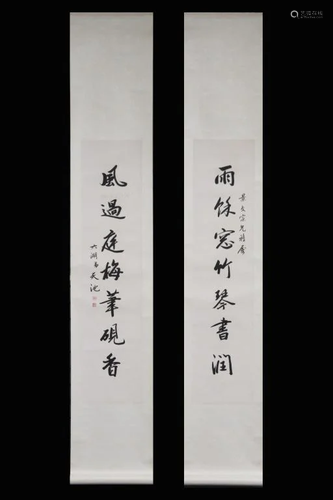 雨餘窓竹琴書潤
風過庭梅筆硯香